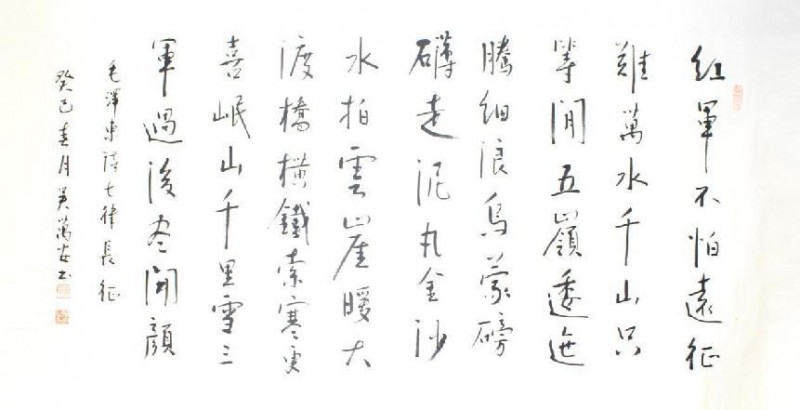 紅軍不怕遠征
難萬水千山只
等閒五嶺逶迤
騰細浪烏蒙磅
礴走泥丸金沙
水拍雲崖暖大
渡橋橫鐵索寒更
喜岷山千里雪三
軍過後尽開顏
毛澤東詩七律長征
癸巳春月吴萬安书